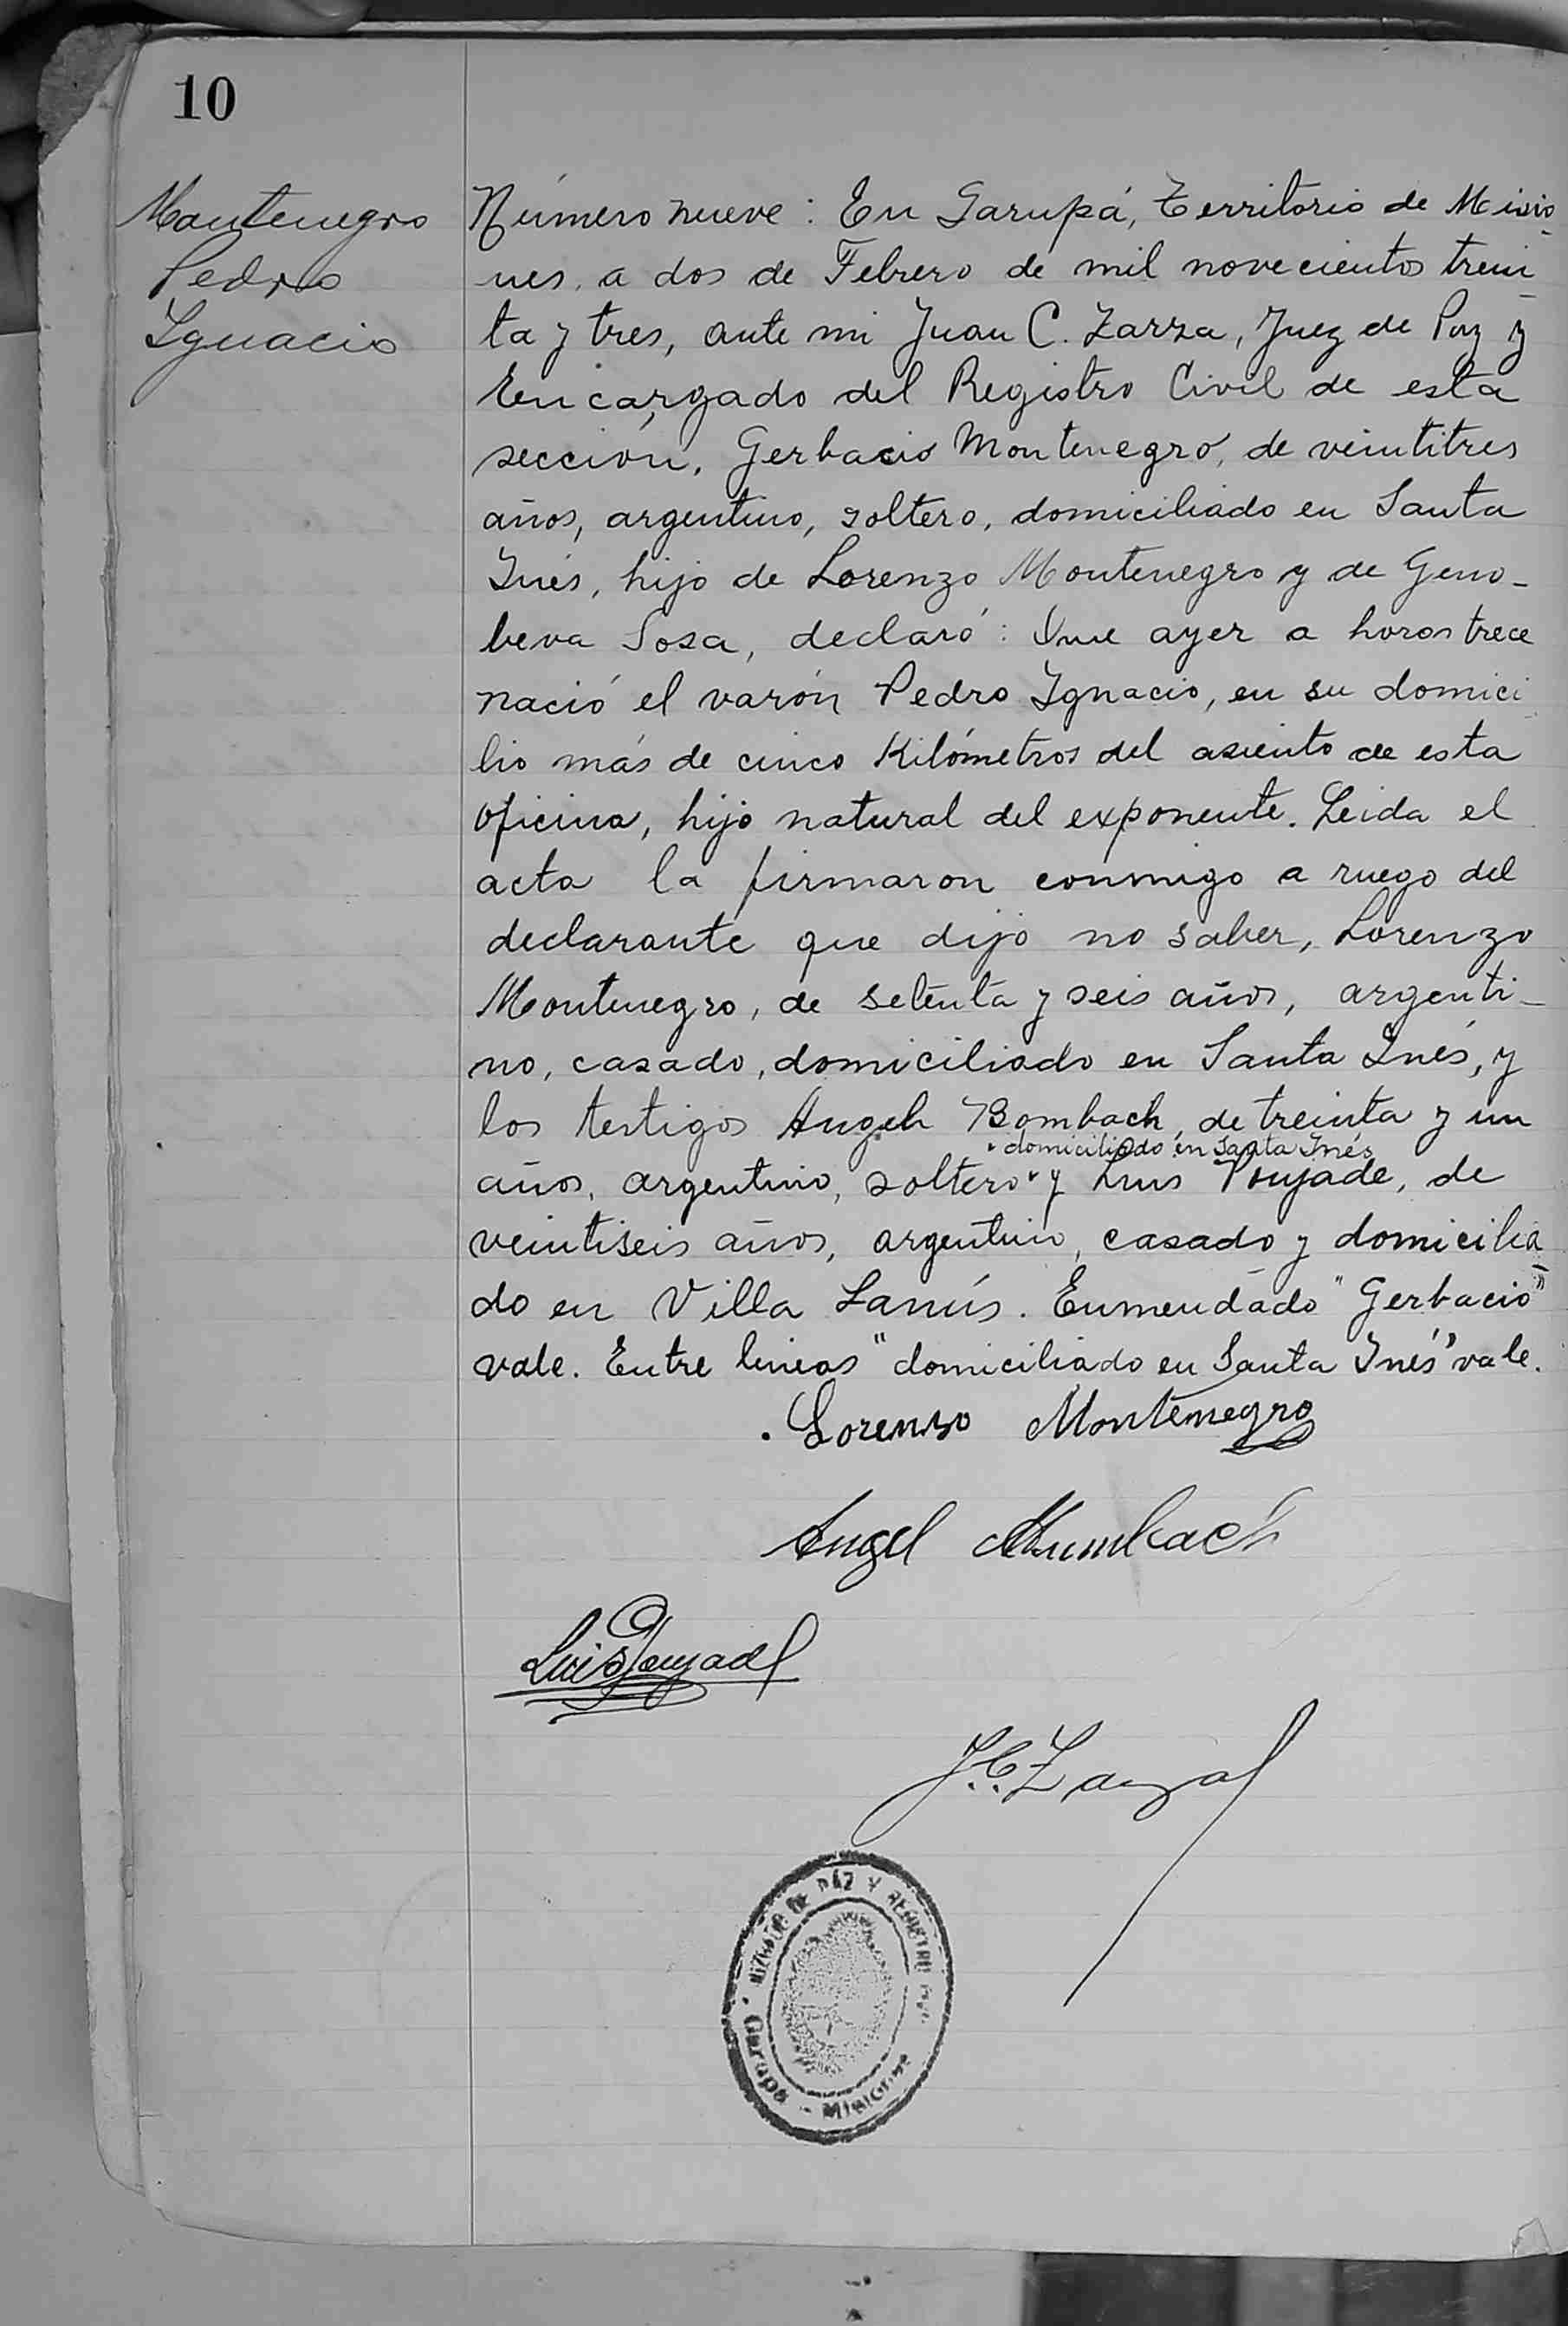 10
Montenegro
Pedro
Ygnacio
Número nueve: En Garupá, Territorio de Misio-
nes, a dos de Febrero de mil novecientos trein-
ta y tres, ante mi Juan C. Zarza, Juez de Paz y
Encargado del Registro Civil de esta
sección, Gerbacio Montenegro, de veintitres
años, argentino, soltero, domiciliado en Santa
Inés, hijo de Lorenzo Montenegro y de Geno-
beva Sosa, declaró: Que ayer a horas trece
nació el varón Pedro Ygnacio, en su domici
lio más de cinco Kilómetros del asiento de esta
oficina, hijo natural del exponente. Leida el
acta la firmaron conmigo a ruego del
declarante que dijo no saber, Lorenzo
Montenegro, de setenta y seis años, argenti-
no, casado, domiciliado en Santa Inés, y
los testigos Angel Bombach, de treinta y un
"domiciliado en Santa Inés
años, argentino, soltero" y Luis Poujade, de
veintiseis años, argentino, casado y domicilia-
do en Villa Lanús. Enmendado "Gerbacio"
vale. Entre lineas "domiciliado en Santa Inés" vale.
Lorenso Montenegro
Angel
Luis Poujade
J.C. Zarza
JUZGADO DE PAZ Y REGISTRO CIVIL
Garupá - Misiones